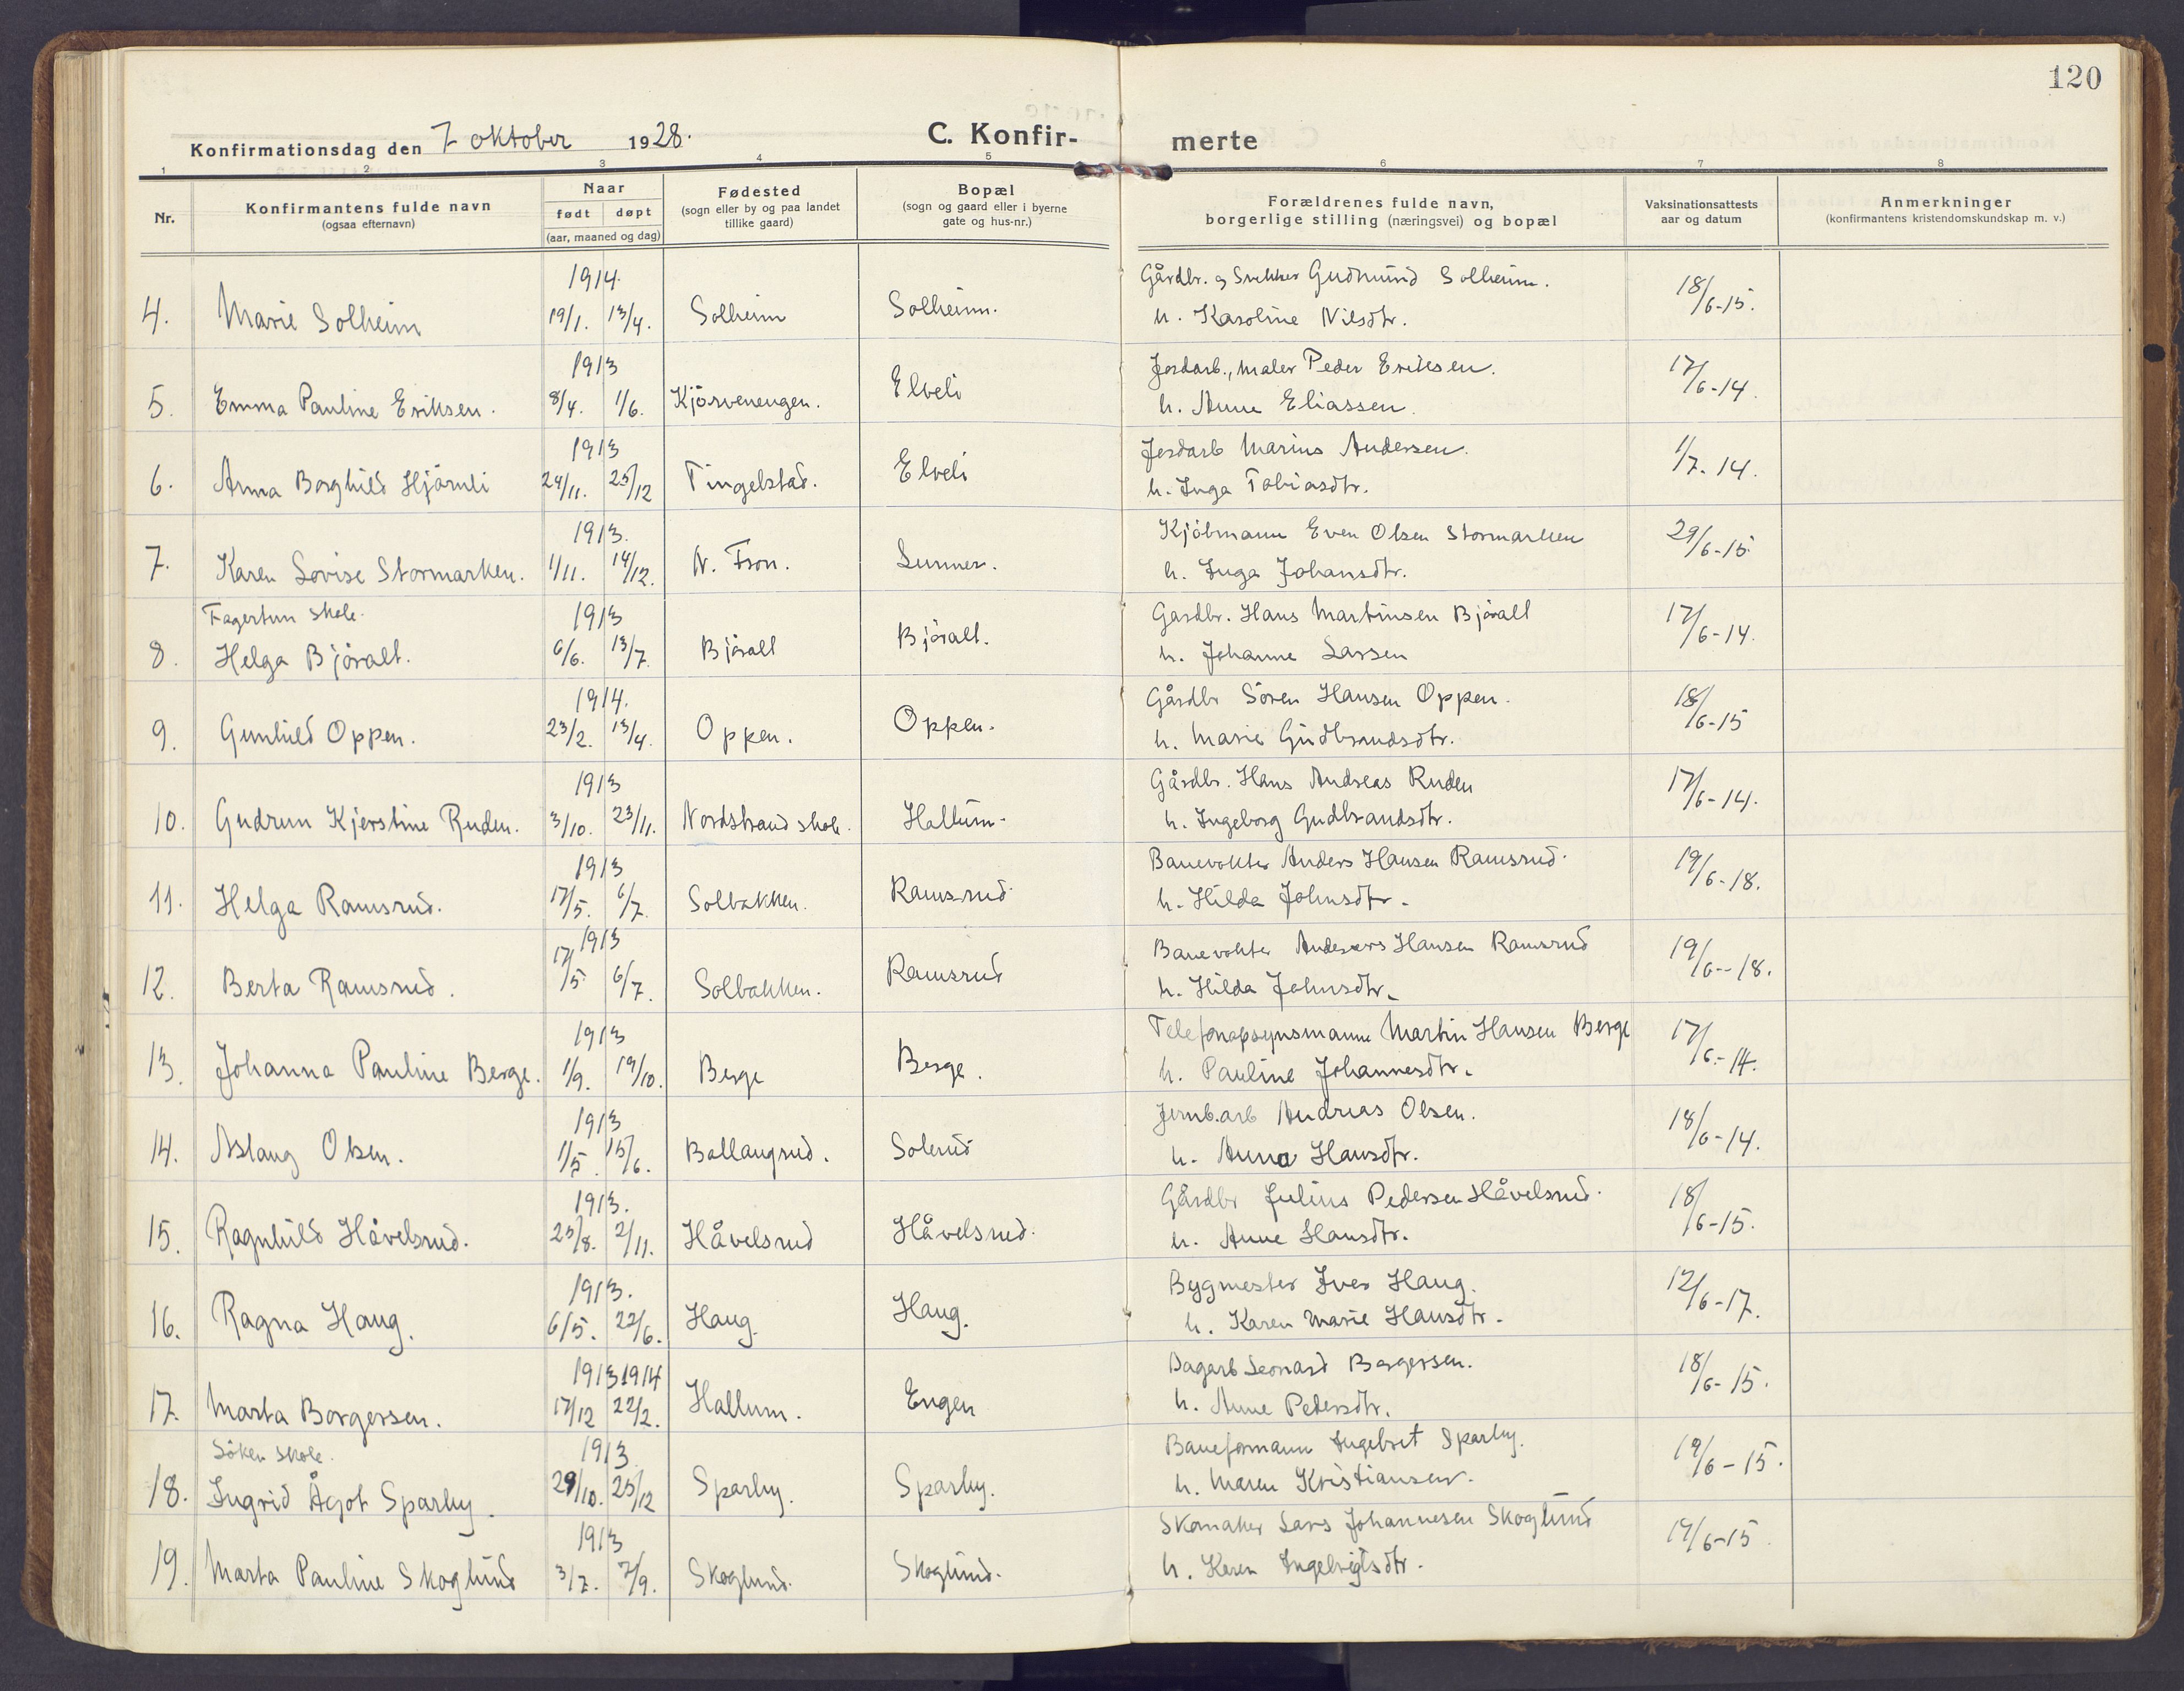 120
Konfirmationsdag den 7 oktober 1928.
C. Konfir- merte
1 2 3 4 5 6 7 8
Nr.
Konfirmantens fulde navn
(ogsaa efternavn)
Naar
født døpt
(aar, maaned og dag)
Fødested
(sogn eller by og paa landet
tillike gaard)
Bopæl
(sogn og gaard eller i byerne
gate og hus-nr.)
Forældrenes fulde navn,
borgerlige stilling (næringsvei) og bopæl
Vaksinationsattests
aar og datum
Anmerkninger
(konfirmantens kristendomskundskap m. v.)
1914. Gårdbr. og Snekker Gudmund Solheim.
4. Marie Solheim 19/1. 13/4. Solheim Solheim. h. Karoline Nilsdtr. 18/6-15.
1913 Jordarb., maler Peder Eriksen.
5. Emma Pauline Eriksen. 8/4. 1/6. Kjørvenengen. Elveli h. Anne Eliassen. 17/6-14.
1913 Jordarb Marius Andersen.
6. Anna Borghild Hjørnli 24/11. 25/12 Tingelstad. Elveli h. Inga Tobiasdtr. 1/7. 14.
1913. Kjøbmann Even Olsen Stormarken
7. Karen Lovise Stormarken. 1/11. 14/12. N. Fron. Lunner. h. Inga Johansdtr. 29/6-15.
Fagertun skole. 1913 Gardbr. Hans Martinsen Björalt
8. Helga Björalt. 6/6. 13/7. Björalt Björalt. h. Johanne Larsen 17/6-14.
1914. Gårdbr Sören Hansen Oppen.
9. Gunhild Oppen. 23/2. 13/4. Oppen. Oppen. h. Marie Gudbrandsdtr. 18/6-15
1913 Gårdbr. Hans Andreas Ruden
10. Gudrun Kjerstine Ruden. 3/10. 23/11. Nordstrand skole. Hallum. h. Ingeborg Gudbrandsdtr. 17/6-14.
1913 Banevokter Anders Hansen Ramsrud.
11. Helga Ramsrud. 17/5. 6/7. Solbakken. Ramsrud. h. Hilda Johnsdtr. 19/6-18.
1913 Banevokter Anders Hansen Ramsrud
12. Berta Ramsrud. 17/5. 6/7. Solbakken. Ramsrud h. Hilda Johnsdtr. 19/6-18.
1913 Telefonopsynsmann Martin Hansen Berge
13. Johanna Pauline Berge. 1/9. 19/10. Berge Berge. h. Pauline Johannesdtr. 17/6-14.
1913 Jernb.arb Andreas Olsen.
14. Aslaug Olsen. 1/5. 15/6. Ballangrud. Solerud h. Anna Hansdtr. 18/6-14.
1913. Gårdbr Julius Pedersen Håvelsrud.
15. Ragnhild Håvelsrud. 25/8. 2/11. Håvelsrud Håvelsrud. h. Anne Hansdtr. 18/6-15.
1913. Bygmester Iver Haug.
16. Ragna Haug. 6/5. 22/6. Haug. Haug. h. Karen Marie Hansdtr. 12/6-17.
1913 1914 Dagarb Leonard Borgersen.
17. Marta Borgersen. 17/12 22/2. Hallum. Engen h. Anne Pedersdtr. 18/6-15.
Söken skole. 1913 Baneformann Ingebret Sparby.
18. Ingrid Ågot Sparby. 29/10. 25/12 Sparby. Sparby. h. Maren Kristiansen. 19/6-15.
1913 Skomaker Lars Johannesen Skoglund
19. Marta Pauline Skoglund 3/7. 7/9. Skoglund. Skoglund. h. Karen Ingebrigtsdtr. 19/6-15